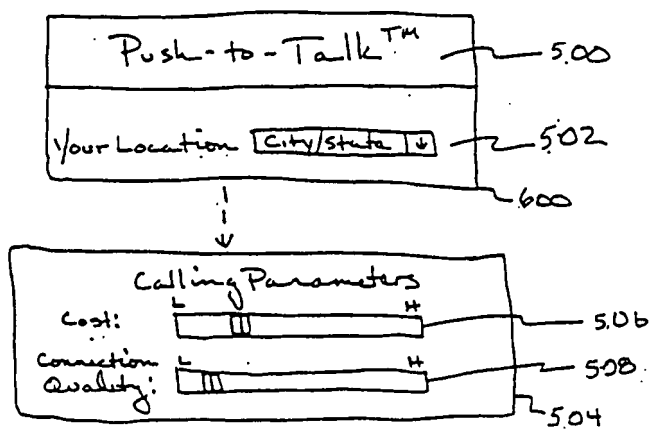 Push-to-Talk™ 500
Your Location City/State ↓ 502
600
Calling Parameters
L H
Cost: 506
L H
Connection
Quality: 508
504